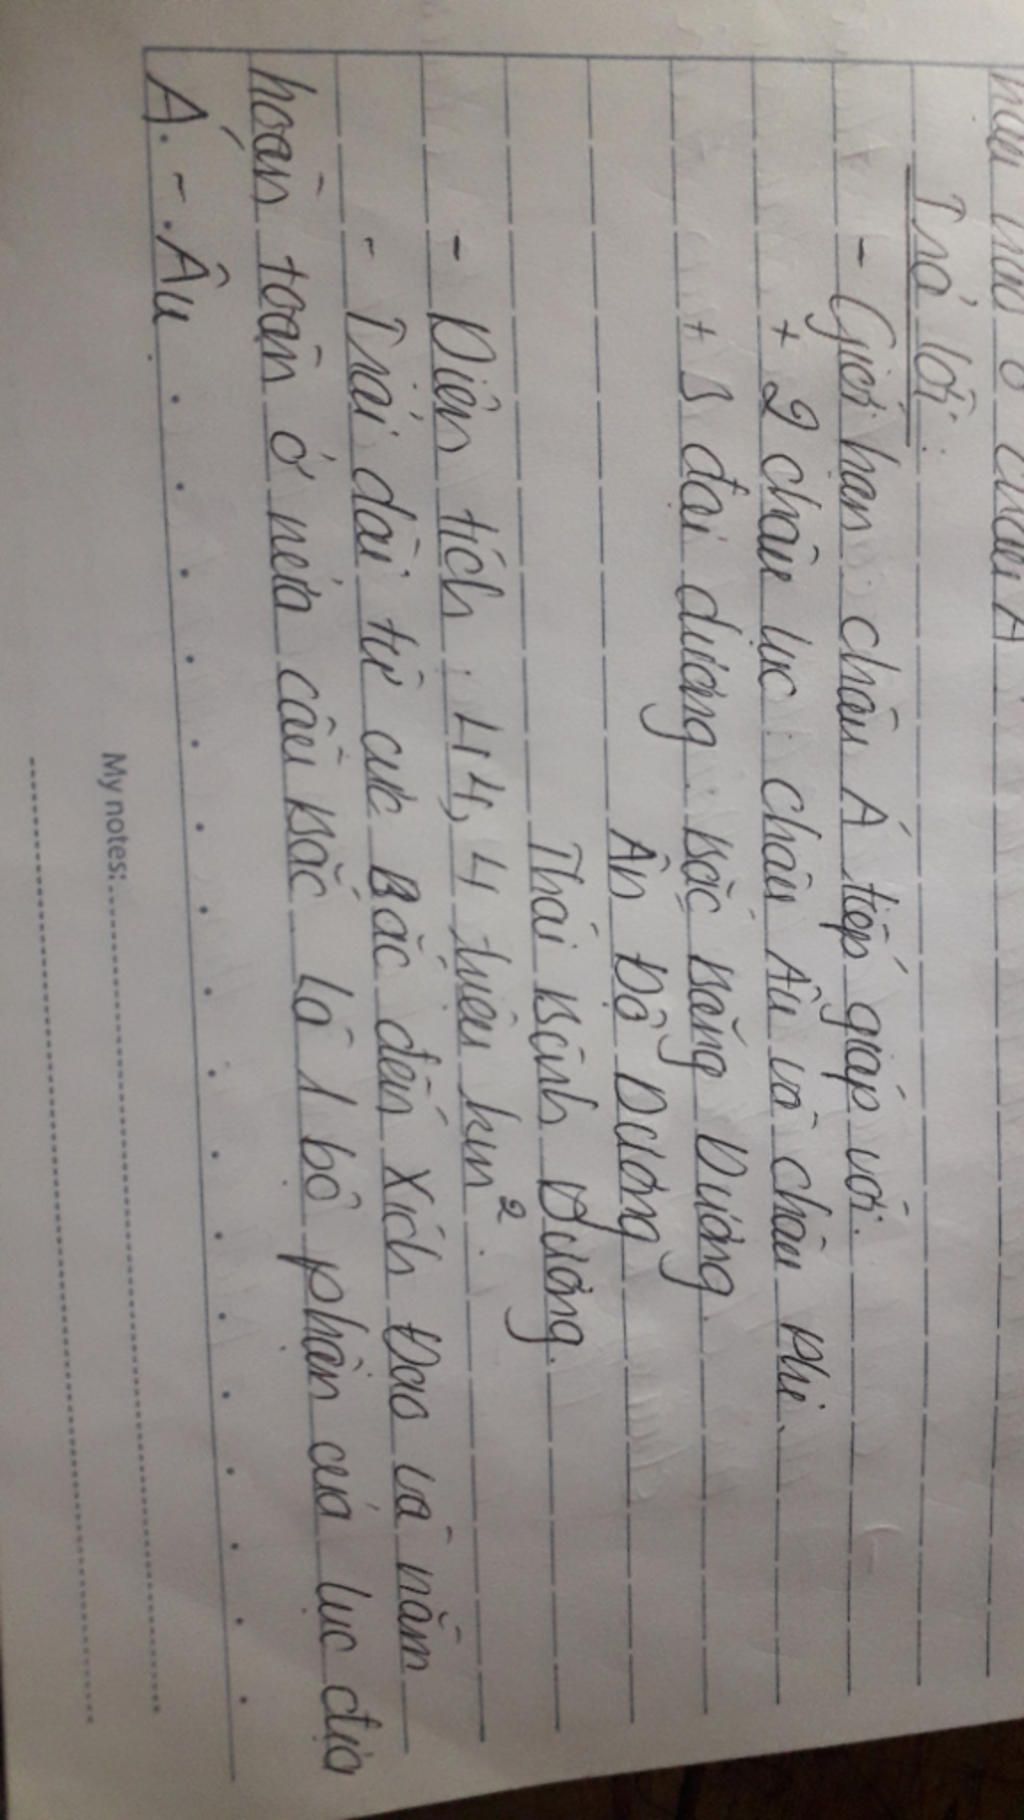 Trả lời:
- Giới hạn: châu Á tiếp giáp với:
+ 2 châu lục: châu Âu và châu Phi.
+ 3 đại dương: Bắc Băng Dương
Ấn Độ Dương
Thái Bình Dương.
- Diện tích: 44,4 triệu km².
- Trải dài từ cực Bắc đến Xích Đạo và nằm
hoàn toàn ở nửa cầu Bắc. Là 1 bộ phận của lục địa
Á - Âu.
My notes: